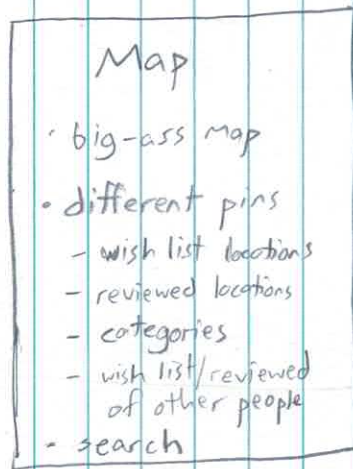 Map
• big-ass map
• different pins
- wish list locations
- reviewed locations
- categories
- wish list/reviewed
of other people
• search